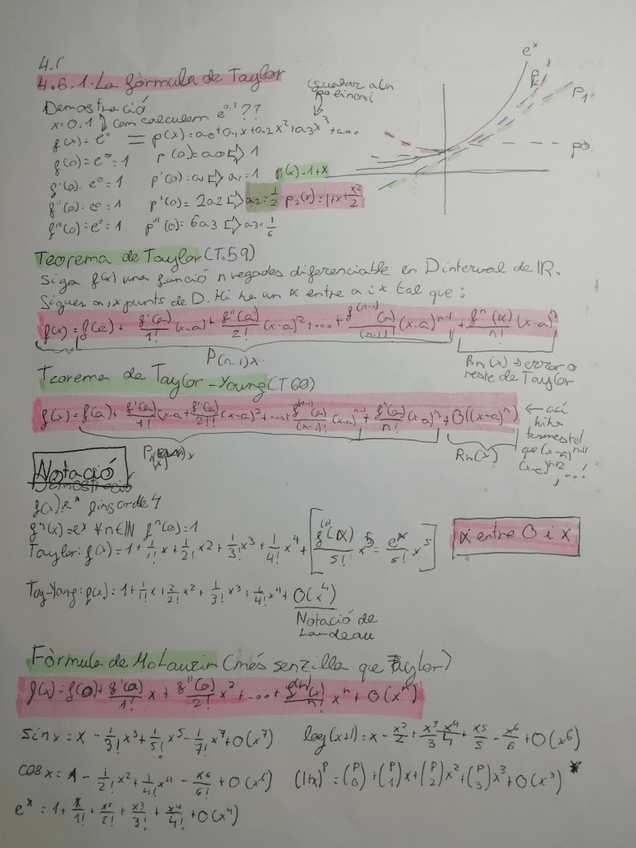 4.
4.6.1. La fòrmula de Taylor
Demostració
x=0,1 com calculem e^0.1 ??
igualar a un polinomi
f(x) = e^x = p(x) = a0 + a1x + a2x^2 + a3x^3 + ...
f(0) = e^0 = 1 p(0) = a0 ⇒ 1
f'(0) = e^0 = 1 p'(0) = a1 ⇒ a1 = 1 p1(x) = 1+x
f''(0) = e^0 = 1 p''(0) = 2a2 ⇒ a2 = 1/2 p2(x) = 1+x+x^2/2
f'''(0) = e^0 = 1 p'''(0) = 6a3 ⇒ a3 = 1/6
e^x
P2
P1
p0
Teorema de Taylor (T.59)
Siga f(x) una funció n vegades diferenciable en D interval de IR.
Siguen a, x punts de D. Hi ha un α entre a i x tal que:
f(x) = f(a) + f'(a)/1! (x-a) + f''(a)/2! (x-a)^2 + ... + f^(n-1)(a)/(n-1)! (x-a)^n-1 + f^n(α)/n! (x-a)^n
P(n-1)x
Rn(x) → error o
reste de Taylor
Teorema de Taylor-Young (T60)
f(x) = f(a) + f'(a)/1! (x-a) + f''(a)/2! (x-a)^2 + ... + f^(n-1)(a)/(n-1)! (x-a)^n-1 + f^n(a)/n! (x-a)^n + O((x-a)^n)
← ací
hi ha
termes tel
que (x-a)^n+1
(x-a)^n+2, ...
Rn(x)
Notació
Demostració
f(x) = e^x fins orde 4
f^n(x) = e^x ∀n∈IN f^n(0) = 1
Taylor: f(x) = 1 + 1/1! x + 1/2! x^2 + 1/3! x^3 + 1/4! x^4 + [f^(n)(α)/5! x^5 = e^α/5! x^5]
α entre 0 i x
Tay-Young: f(x) = 1 + 1/1! x + 1/2! x^2 + 1/3! x^3 + 1/4! x^4 + O(x^4)
Notació de
Landeau
Fòrmula de McLaurin (més senzilla que Taylor)
f(x) = f(0) + f'(0)/1! x + f''(0)/2! x^2 + ... + f^(n)(0)/n! x^n + O(x^n)
sin x = x - 1/3! x^3 + 1/5! x^5 - 1/7! x^7 + O(x^7) log(x+1) = x - x^2/2 + x^3/3 - x^4/4 + x^5/5 - x^6/6 + O(x^6)
cos x = 1 - 1/2! x^2 + 1/4! x^4 - x^6/6! + O(x^6) (1+x)^p = (p 0) + (p 1)x + (p 2)x^2 + (p 3)x^3 + O(x^3) *
e^x = 1 + x/1! + x^2/2! + x^3/3! + x^4/4! + O(x^4)